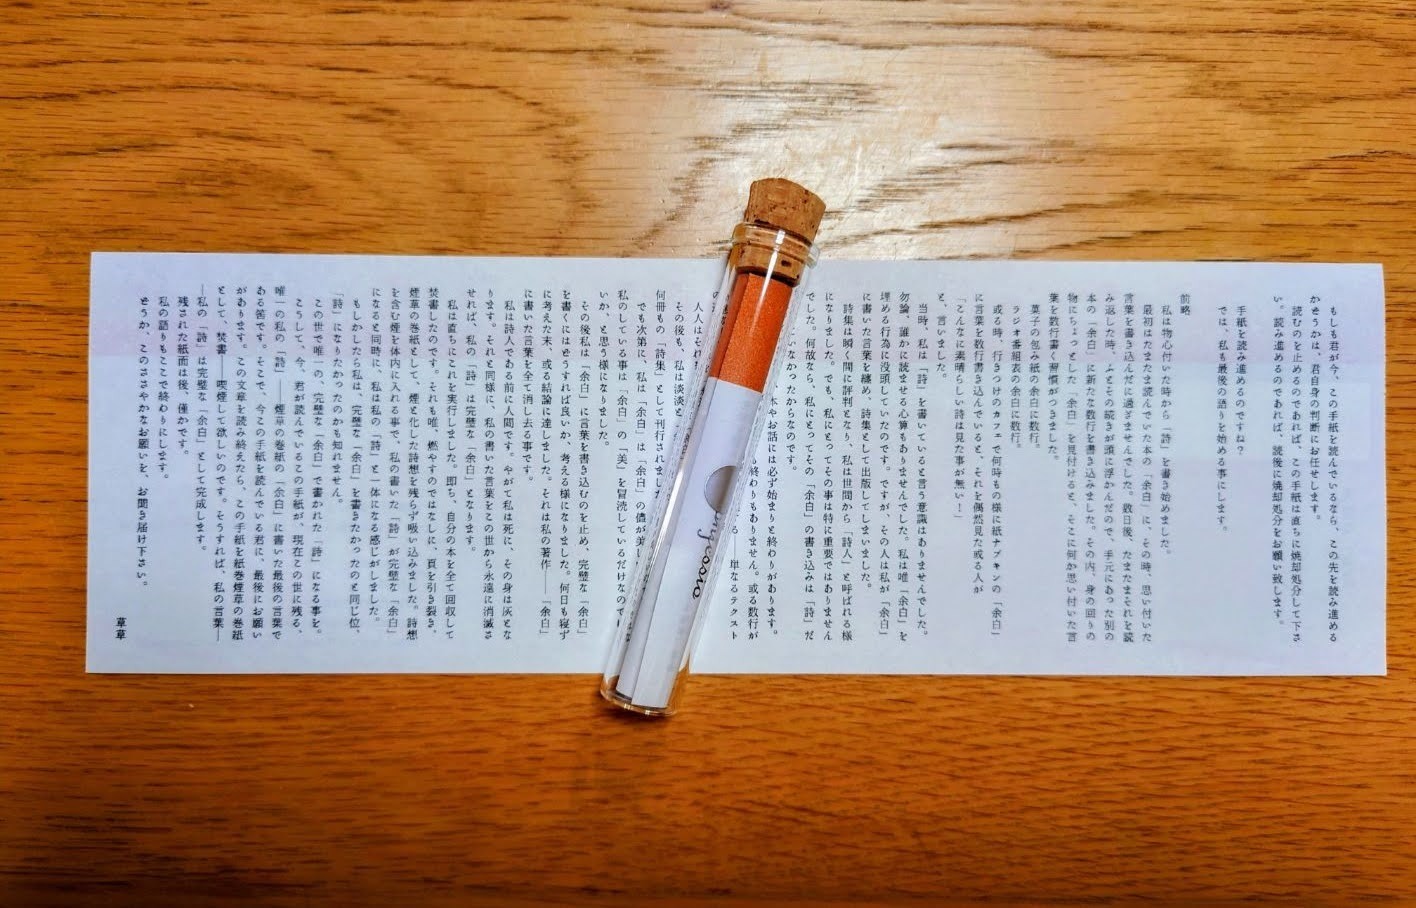 もしも君が今、この手紙を読んでいるなら、この先を読み進める
かどうかは、君自身の判断にお任せします。
読むのを止めるのであれば、この手紙は直ちに焼却処分して下さ
い。読み進めるのであれば、読後に焼却処分をお願い致します。
手紙を読み進めるのですね?
では、私も最後の語りを始める事にします。
前略
私は物心付いた時から「詩」を書き始めました。
最初はたまたま読んでいた本の「余白」に、その時、思い付いた
言葉を書き込んだに過ぎませんでした。数日後、たまたまそれを読
み返した時、ふとその続きが頭に浮かんだので、手元にあった別の
本の「余白」に新たな数行を書き込みました。その内、身の回りの
物にちょっとした「余白」を見付けると、そこに何か思い付いた言
葉を数行書く習慣がつきました。
菓子の包み紙の余白に数行。
ラジオ番組表の余白に数行。
或る時、行きつけのカフェで何時もの様に紙ナプキンの「余白」
に言葉を数行書き込んでいると、それを偶然見た或る人が
「こんなに素晴らしい詩は見た事が無い!」
と、言いました。
当時、私は「詩」を書いていると言う意識はありませんでした。
勿論、誰かに読ませる心算もありませんでした。私は唯「余白」を
埋める行為に没頭していたのです。ですが、その人は私が「余白」
に書いた言葉を纏め、詩集として出版してしまいました。
詩集は瞬く間に評判となり、私は世間から「詩人」と呼ばれる様
になりました。でも、私にとってその事は特に重要ではありません
でした。何故なら、私にとってその「余白」の書き込みは「詩」だ
いなかったからなのです。
本やお話には必ず始まりと終わりがあります。
終わりもありません。或る数行が
る――単なるテクスト
Confessio
人人はそれ
その後も、私は淡淡と
何冊もの「詩集」として刊行されました
でも次第に、私は「余白」は「余白」の儘が美し
私のしている事は「余白」の「美」を冒涜しているだけなので
いか、と思う様になりました。
その後私は「余白」に言葉を書き込むのを止め、完璧な「余白」
を書くにはどうすれば良いか、考える様になりました。何日も寝ず
に考えた末、或る結論に達しました。それは私の著作――「余白」
に書いた言葉を全て消し去る事です。
私は詩人である前に人間です。やがて私は死に、その身は灰とな
ります。それと同様に、私の書いた言葉をこの世から永遠に消滅さ
せれば、私の「詩」は完璧な「余白」となります。
私は直ちにこれを実行しました。即ち、自分の本を全て回収して
焚書したのです。それも唯、燃やすのではなしに、頁を引き裂き、
煙草の巻紙として、煙と化した詩想を残らず吸い込みました。詩想
を含む煙を体内に入れる事で、私の書いた「詩」が完璧な「余白」
になると同時に、私は私の「詩」と一体になる感じがしました。
もしかしたら私は、完璧な「余白」を書きたかったのと同じ位、
「詩」になりたかったのかも知れません。
この世で唯一の、完璧な「余白」で書かれた「詩」になる事を。
こうして、今、君が読んでいるこの手紙が、現在この世に残る、
唯一の私の「詩」――煙草の巻紙の「余白」に書いた最後の言葉で
ある筈です。そこで、今この手紙を読んでいる君に、最後にお願い
があります。この文章を読み終えたら、この手紙を紙巻煙草の巻紙
として、焚書――喫煙して欲しいのです。そうすれば、私の言葉―
―私の「詩」は完璧な「余白」として完成します。
残された紙面は後、僅かです。
私の語りもここで終わりにします。
どうか、このささやかなお願いを、お聞き届け下さい。
草草